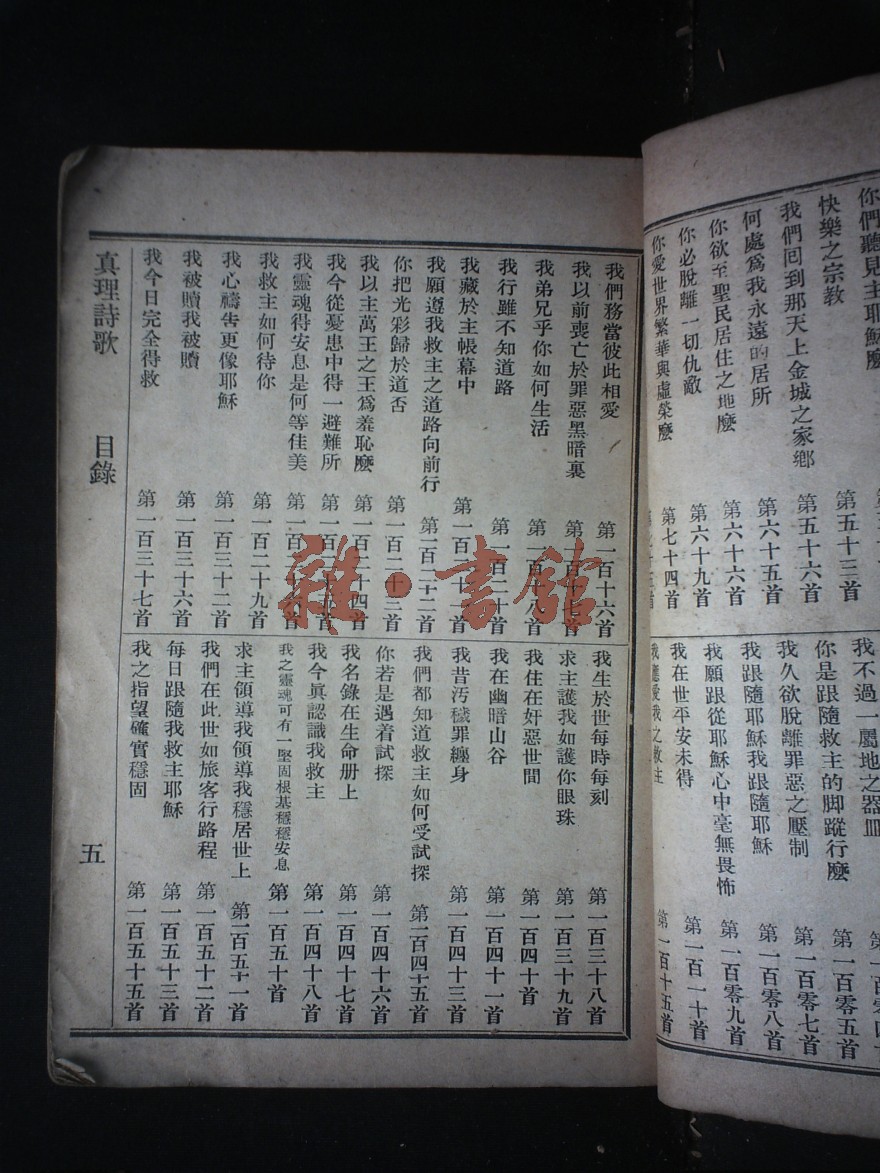 你們聽見主耶穌麽
快樂之宗教
我們回到那天上金城之家鄉 第五十三首
何處爲我永遠的居所 第五十六首
你欲至聖民居住之地麽 第六十五首
你必脫離一切仇敵 第六十六首
你愛世界繁華與虛榮麽 第六十九首
第七十四首
我不過一屬地之器皿
你是跟隨救主的脚蹤行麽 第一百零五首
我久欲脫離罪惡之壓制 第一百零七首
我跟隨耶穌我跟隨耶穌 第一百零八首
我願跟從耶穌心中毫無畏怖 第一百零九首
我在世平安未得 第一百一十首
我應愛我之救主 第一百十五首
我們務當彼此相愛 第一百十六首
我以前喪亡於罪惡黑暗裏 第一百十七首
我弟兄乎你如何生活 第一百十八首
我行雖不知道路 第一百二十首
我藏於主帳幕中
我願遵我救主之道路向前行 第一百二十二首
你把光彩歸於道否 第一百二十三首
我以主萬王之王爲羞恥麽 第一百二十四首
我今從憂患中得一避難所 第一百二十五首
我靈魂得安息是何等佳美 第一百二十六首
我救主如何待你 第一百二十九首
我心禱告更像耶穌 第一百三十二首
我被贖我被贖 第一百三十六首
我今日完全得救 第一百三十七首
我生於世每時每刻 第一百三十八首
求主護我如護你眼珠 第一百三十九首
我住在奸惡世間 第一百四十首
我在幽暗山谷 第一百四十一首
我昔汚穢罪纏身 第一百四十三首
我們都知道救主如何受試探 第一百四十五首
你若是遇着試探 第一百四十六首
我名錄在生命册上 第一百四十七首
我今眞認識我救主 第一百四十八首
我之靈魂可有一堅固根基穩穩安息 第一百五十首
求主領導我領導我穩居世上 第一百五十一首
我們在此世如旅客行路程 第一百五十二首
每日跟隨我救主耶穌 第一百五十三首
我之指望確實穩固 第一百五十五首
真理詩歌 目錄 五
雜·書館